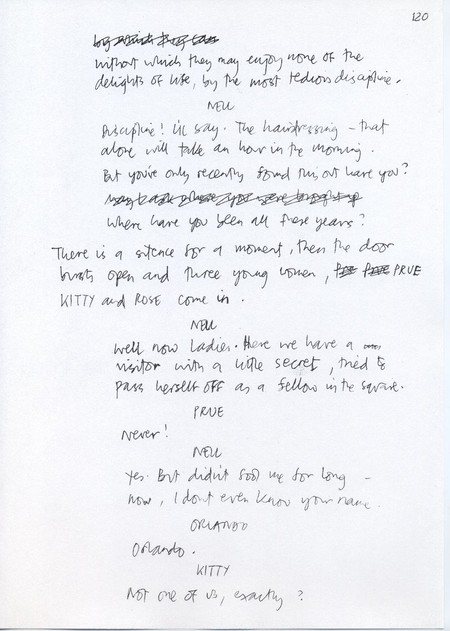 120
without which they may enjoy none of the
delights of life, by the most tedious discipline.
NELL
Discipline! I'll say. The hairdressing - that
alone will take an hour in the morning.
But you've only recently found this out have you?
may I ask where you were brought up
Where have you been all these years?
There is a silence for a moment, then the door
bursts open and three young women, PRUE
KITTY and ROSE come in.
NELL
Well now Ladies. Here we have a
visitor with a little secret, tried to
pass herself off as a fellow in the square.
PRUE
Never!
NELL
Yes. But didn't fool me for long -
now, I don't even know your name.
ORLANDO
Orlando.
KITTY
Not one of us, exactly?